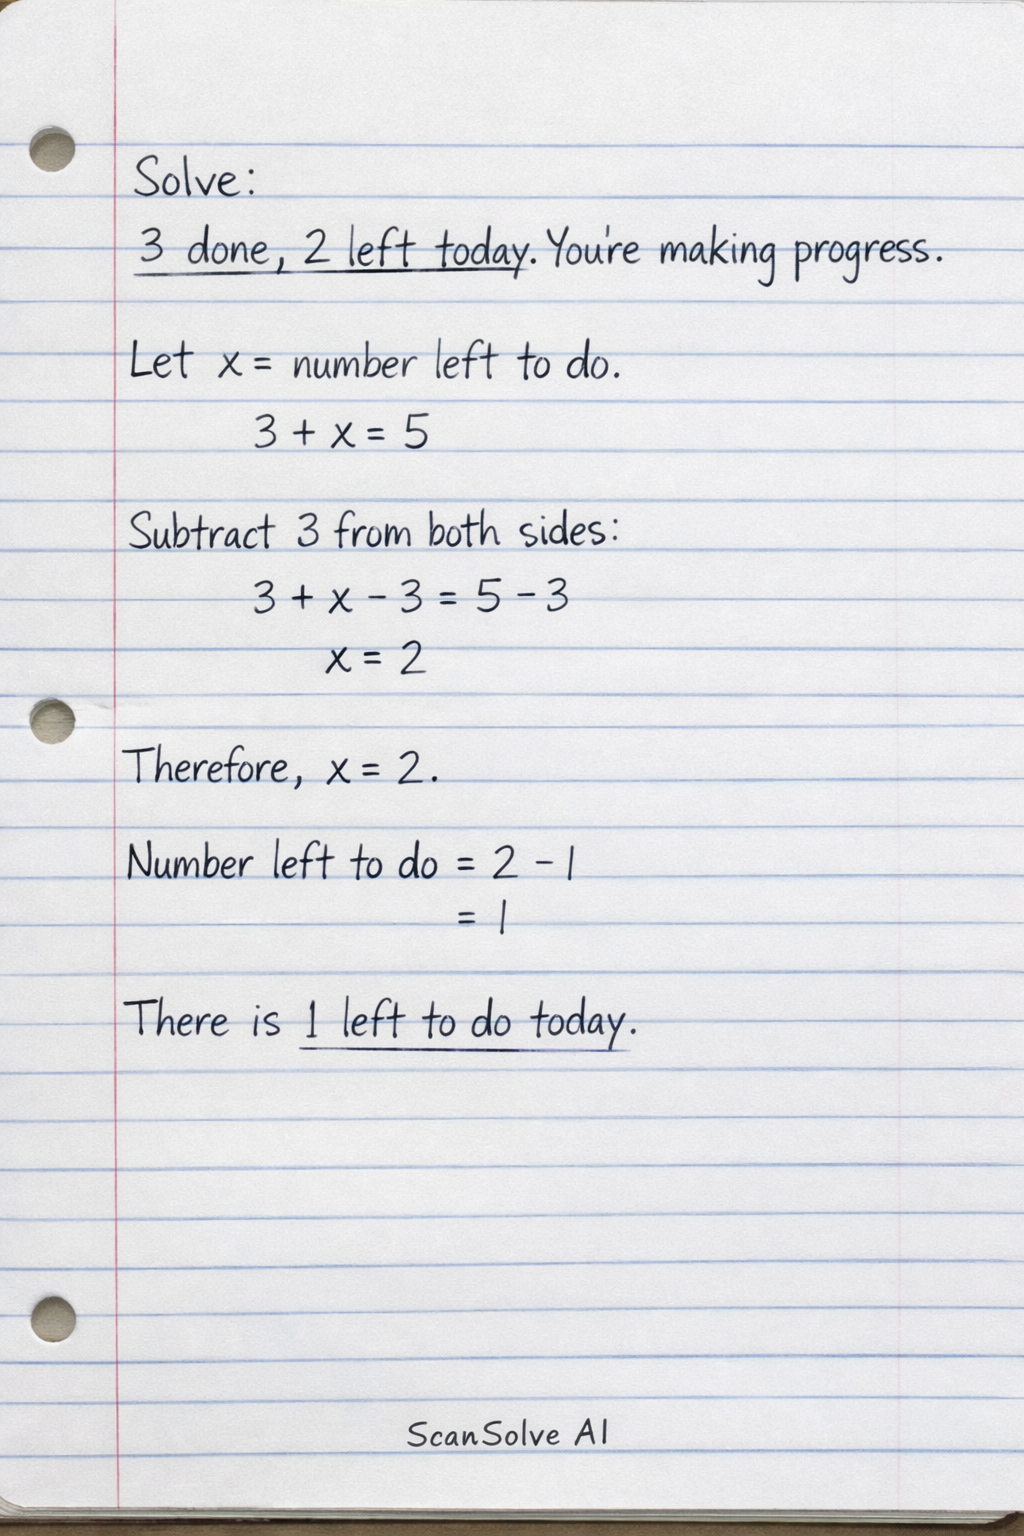 Solve:
3 done, 2 left today. You're making progress.
Let x = number left to do.
3 + x = 5
Subtract 3 from both sides:
3 + x - 3 = 5 - 3
x = 2
Therefore, x = 2.
Number left to do = 2 - 1
= 1
There is 1 left to do today.
ScanSolve AI